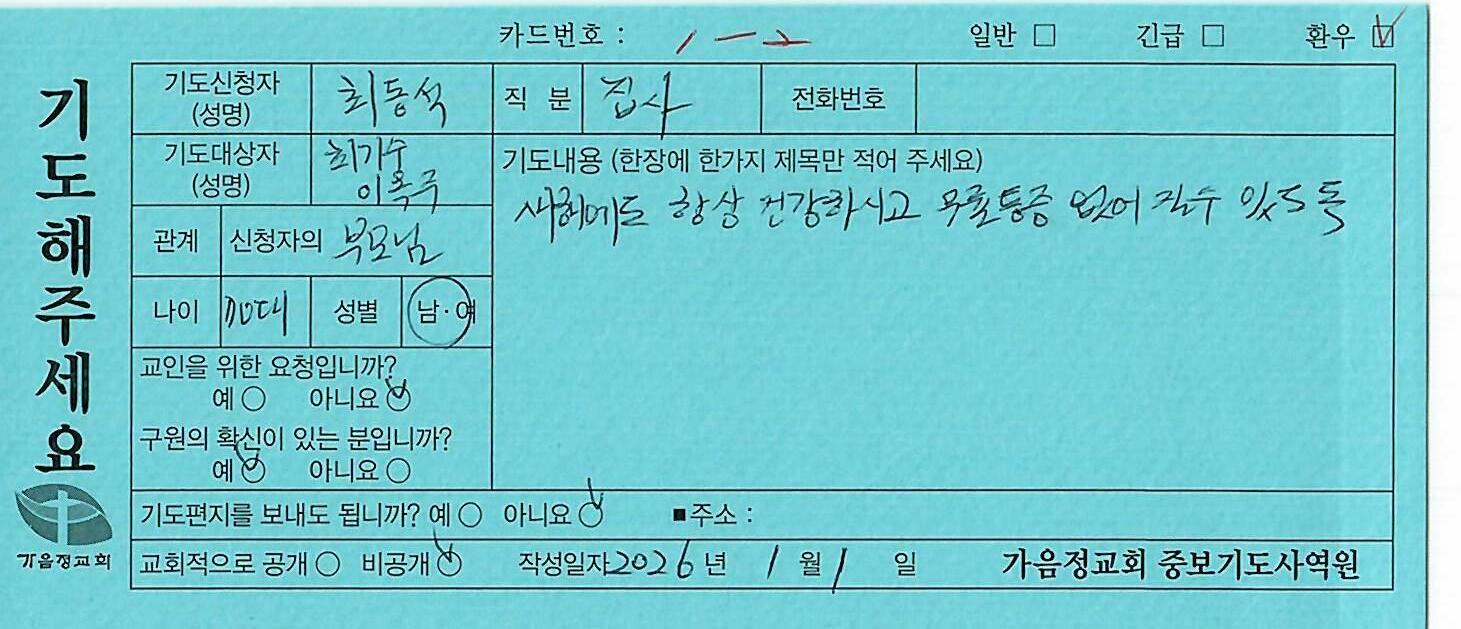 카드번호 : 1-2 일반 □ 긴급 □ 환우 ☑
기도해주세요
가음정교회
기도신청자 (성명) 최동석 직 분 집사 전화번호
기도대상자 (성명) 최기수 이옥주
관계 신청자의 부모님
나이 70대 성별 남·여
교인을 위한 요청입니까?
예 ○ 아니요 ☑
구원의 확신이 있는 분입니까?
예 ☑ 아니요 ○
기도내용 (한장에 한가지 제목만 적어 주세요)
새해에도 항상 건강하시고 무릎통증 없어 질수 있도록
기도편지를 보내도 됩니까? 예 ○ 아니요 ☑ ■주소 :
교회적으로 공개 ○ 비공개 ☑ 작성일자 2026 년 1 월 1 일 가음정교회 중보기도사역원